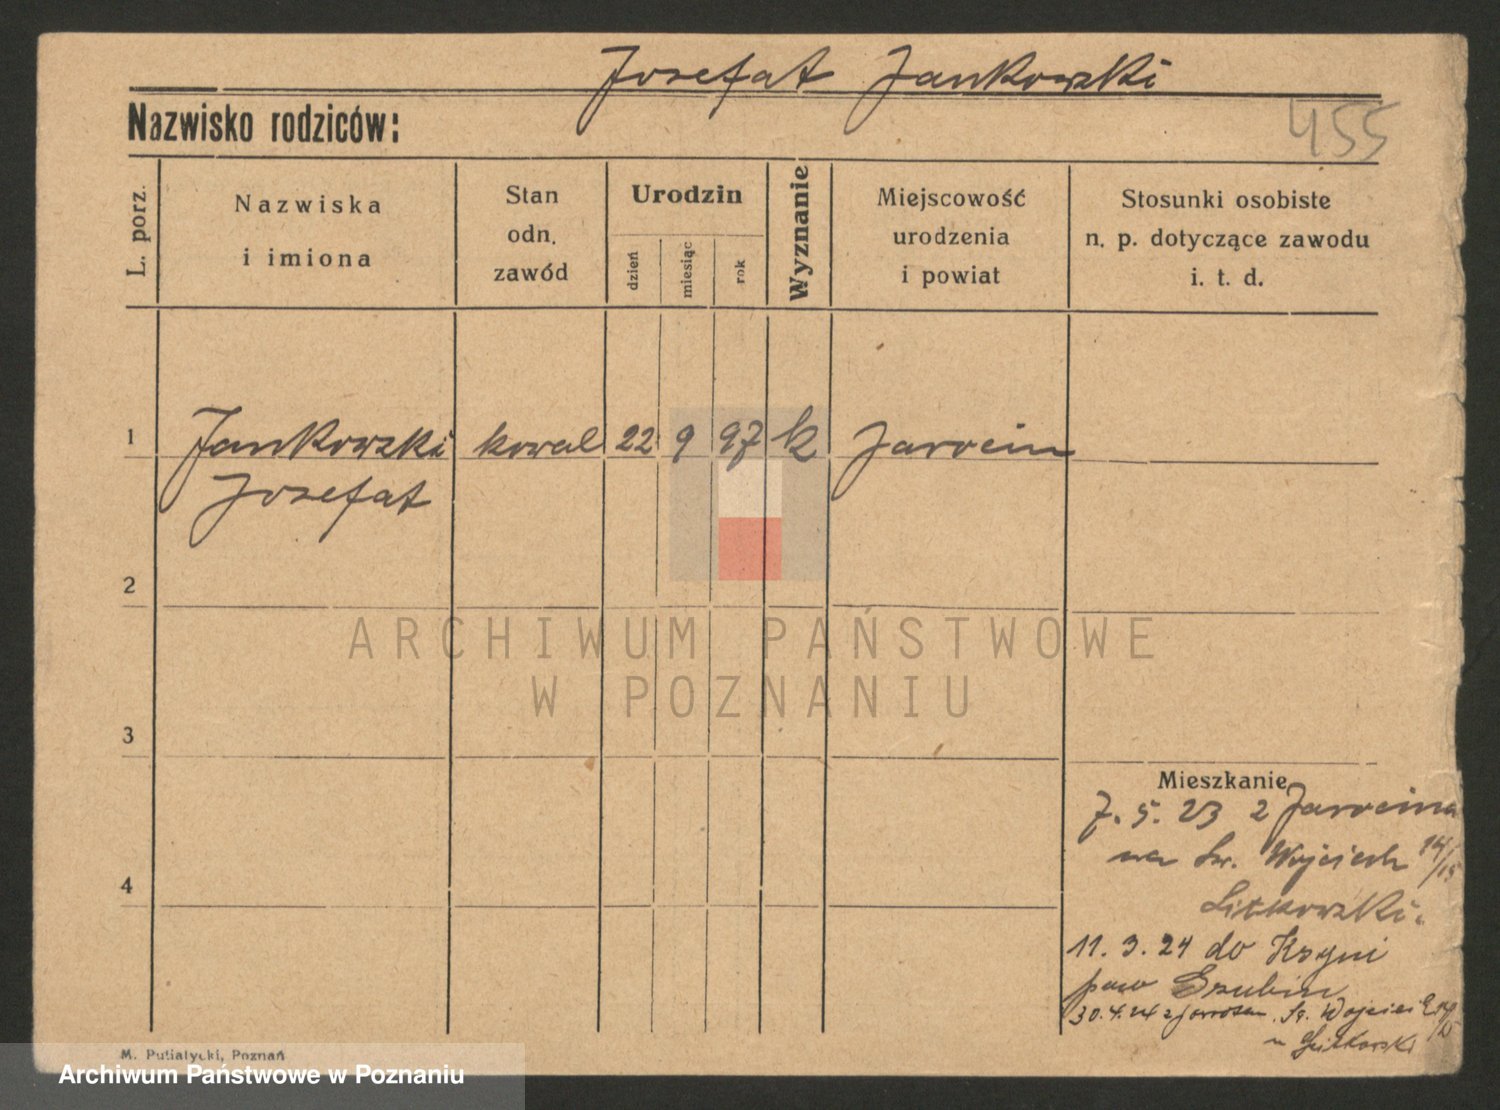 Josefat Jankowski
Nazwisko rodziców:
455
L. porz.
Nazwiska
i imiona
Stan
odn.
zawód
Urodzin
dzień
miesiąc
rok
Wyznanie
Miejscowość
urodzenia
i powiat
Stosunki osobiste
n. p. dotyczące zawodu
i. t. d.
1 Jankowski kowal 22 9 97 k Jarocin
Josefat
2
ARCHIWUM PAŃSTWOWE
W POZNANIU
3
Mieszkanie
7. 5. 23 z Jarocina
na Św. Wojciech 14/15
4
Litkowski.
11. 3. 24 do Ksyni
pow Szubin
30.4.24 z Św. Wojciech
M. Putiatycki, Poznań
Archiwum Państwowe w Poznaniu